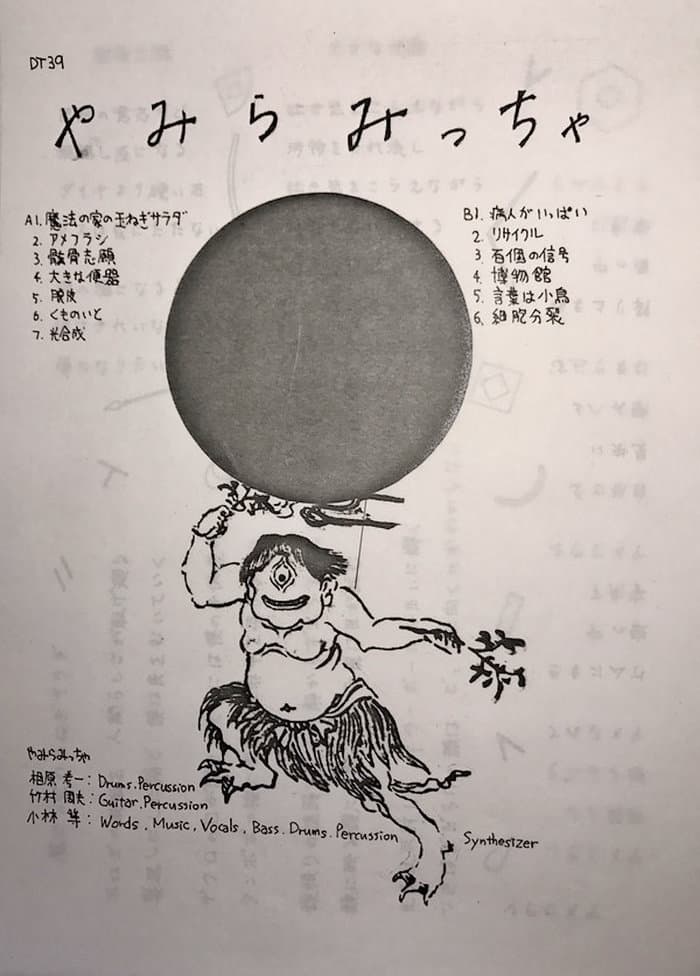 DT39
やみらみっちゃ
A1. 魔法の家の玉ねぎサラダ
2. アメフラシ
3. 骸骨志願
4. 大きな便器
5. 脱皮
6. くものいと
7. 光合成
B1. 病人がいっぱい
2. リサイクル
3. 百個の信号
4. 博物館
5. 言葉は小鳥
6. 細胞分裂
やみらみっちゃ
相原 孝一: Drums. Percussion
竹村 : Guitar. Percussion
小林 : Words, Music, Vocals, Bass. Drums. Percussion
Synthesizer